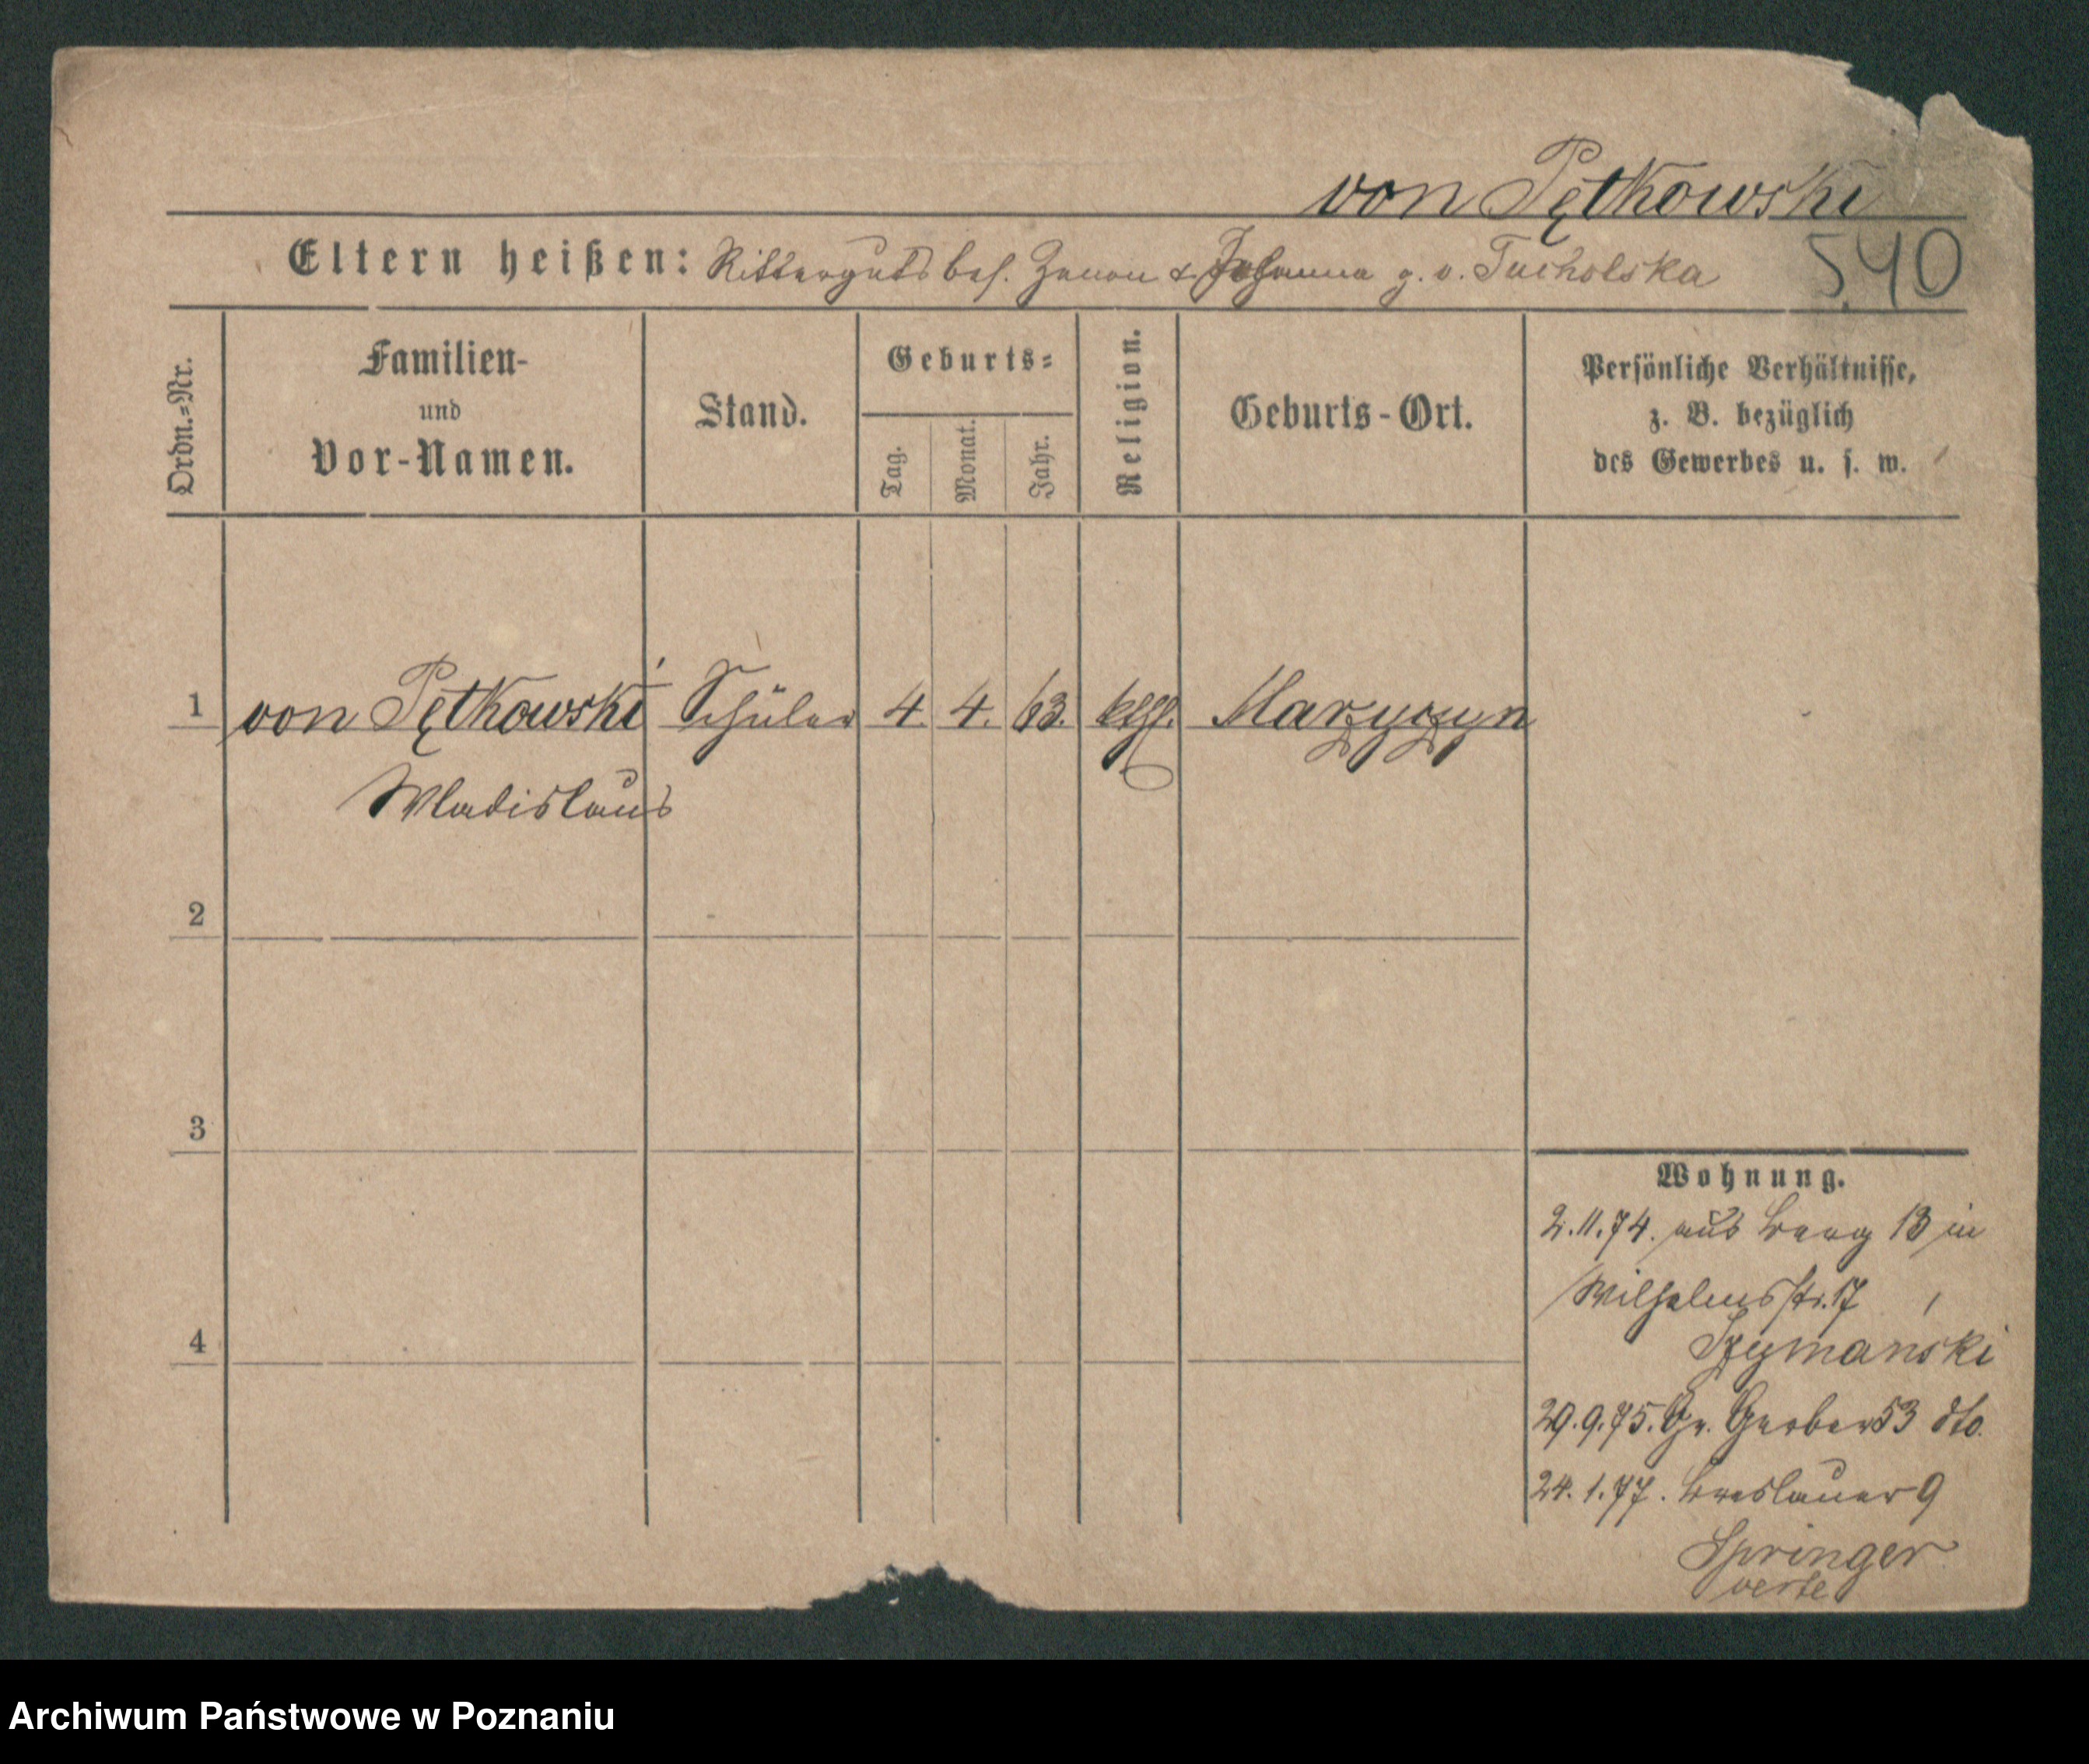 von Pętkowski
Eltern heißen: Rittergutsbes. Zenon & Johanna g. v. Tucholska
540
Ordn.-Nr.
Familien-
und
Vor-Namen.
Stand.
Geburts-
Tag.
Monat.
Jahr.
Religion.
Geburts-Ort.
Persönliche Verhältnisse,
z. B. bezüglich
des Gewerbes u. s. w.
1 von Pętkowski Schüler 4. 4. 63. kth. Marzyczyn
Wladislaus
2
3
4
Wohnung.
2.11.74. aus Berg 13 in
Wilhelmsstr. 17
Szymański
29.9.75. Gr. Gerber 53 dto.
24.1.77. Breslauer 9
Springer
verte
Archiwum Państwowe w Poznaniu